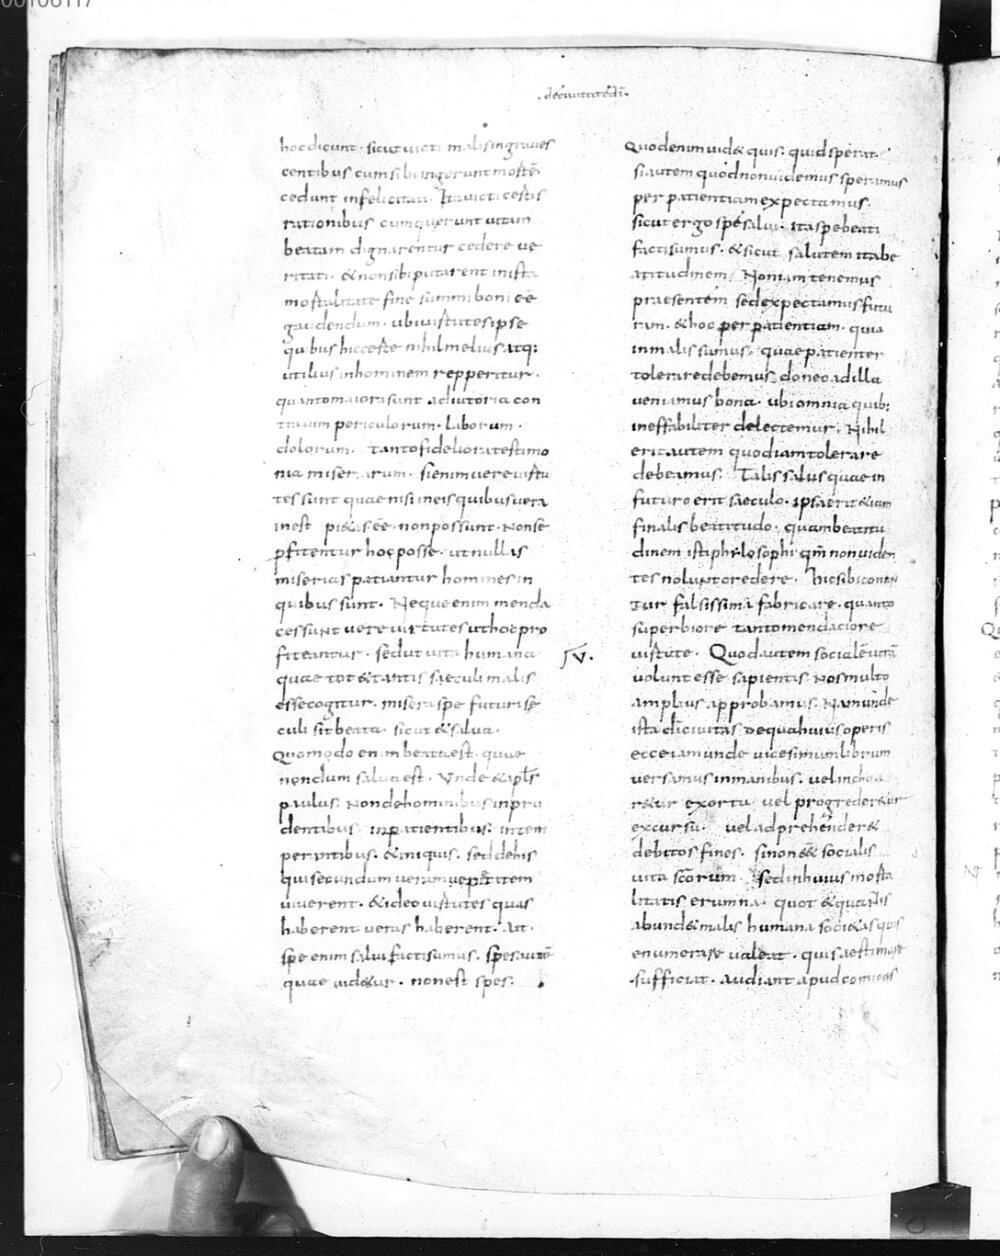 00106117
de ciuitate dī
hoc dicunt. sicut uicti malis ingraues
centibus cum sibi ingerunt mortē.
cedunt infelicitati. Ita uicti certis
rationibus cum querunt uitam
beatam dignarentur cedere ue
ritati. & non sibi putarent in ista
mortalitate fine summi boni eē
gaudendum. ubi uirtutes ipse
quibus hic certe nihil melius atq:
utilius in hominem repperitur.
quanto maiora sunt adiutoria con
tra uim periculorum. laborum.
dolorum. tanto fideliora testimo
nia miseriarum. Si enim uere uirtu
tes sunt quae nisi in eis quibus uera
inest pi&as eē non possunt. Non se
pfitentur hoc posse. ut nullas
miserias patiantur homines in
quibus sunt. Neque enim menda
ces sunt uere uirtutes ut hoc pro
fiteantur. sed ut uita humana
quae tot & tantis saeculi malis
esse cogitur. misera spe futuri sę
culi sit beata. sicut & salua.
Quomodo enim beata est. quae
nondum salua est. Unde & apls
paulus. Non de hominibus inpru
dentibus. inpatientibus. intem
perantibus. & iniquis. sed de his
qui secundum ueram pietatem
uiuerent. & ideo uirtutes quas
haberent ueras haberent. Ait.
spe enim salui facti sumus. spes autē
quae uid&ur. non est spes.
Quod enim uid& quis. quid sperat.
si autem quod non uidemus speramus
per patientiam expectamus.
sicut ergo spe salui. ita spe beati
facti sumus. & sicut salutem ita be
atitudinem. Non iam tenemus
praesentem sed expectamus futu
ram. & hoc per patientiam. quia
in malis sumus. quae patienter
tolerare debemus. donec ad illa
ueniamus bona. ubi omnia quib:
ineffabiliter delectemur. Nihil
erit autem quod iam tolerare
debeamus. Talis salus quae in
futuro erit saeculo. ipsa erit &iam
finalis beatitudo. quam beatitu
dinem isti philosophi qm̄ non uiden
tes nolunt credere. hic sibi conan
tur falsissimā fabricare. quanto
superbiore tanto mendaciore
V.
uirtute. Quod autem socialē uitā
uolunt esse sapientis. Nos multo
amplius approbamus. Nam unde
ista dī ciuitas de qua huius operis
ecce iam unde uicesimum librum
uersamus in manibus. uel inchoa
r&ur exortu. uel progreder&ur
excursu. uel adprehender&
debitos fines. si non ess& socialis
uita scōrum. Sed in huius morta
litatis erumna. quot & quantis
abund& malis humana soci&as quis
enumerare ualeat. quis aestimare
sufficiat. audiant apud comicos